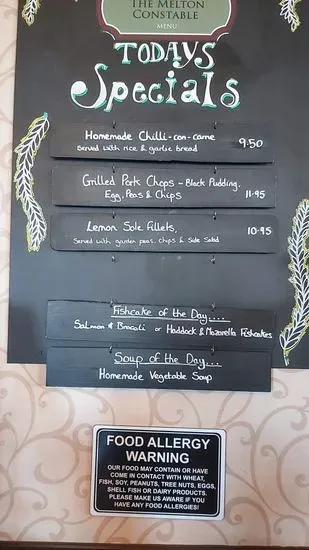 THE MELTON
CONSTABLE
MENU
TODAYS
Specials
Homemade Chilli-con-carne 9.50
Served with rice & garlic bread
Grilled Pork Chops - Black Pudding,
Egg, Peas & Chips 11.95
Lemon Sole Fillets, 10.95
Served with garden peas, chips & Side Salad
Fishcake of the Day....
Salmon & Brocoli or Haddock & Mozarella Fishcakes
Soup of the Day...
Homemade Vegetable Soup
FOOD ALLERGY
WARNING
OUR FOOD MAY CONTAIN OR HAVE
COME IN CONTACT WITH WHEAT,
FISH, SOY, PEANUTS, TREE NUTS, EGGS,
SHELL FISH OR DAIRY PRODUCTS.
PLEASE MAKE US AWARE IF YOU
HAVE ANY FOOD ALLERGIES!